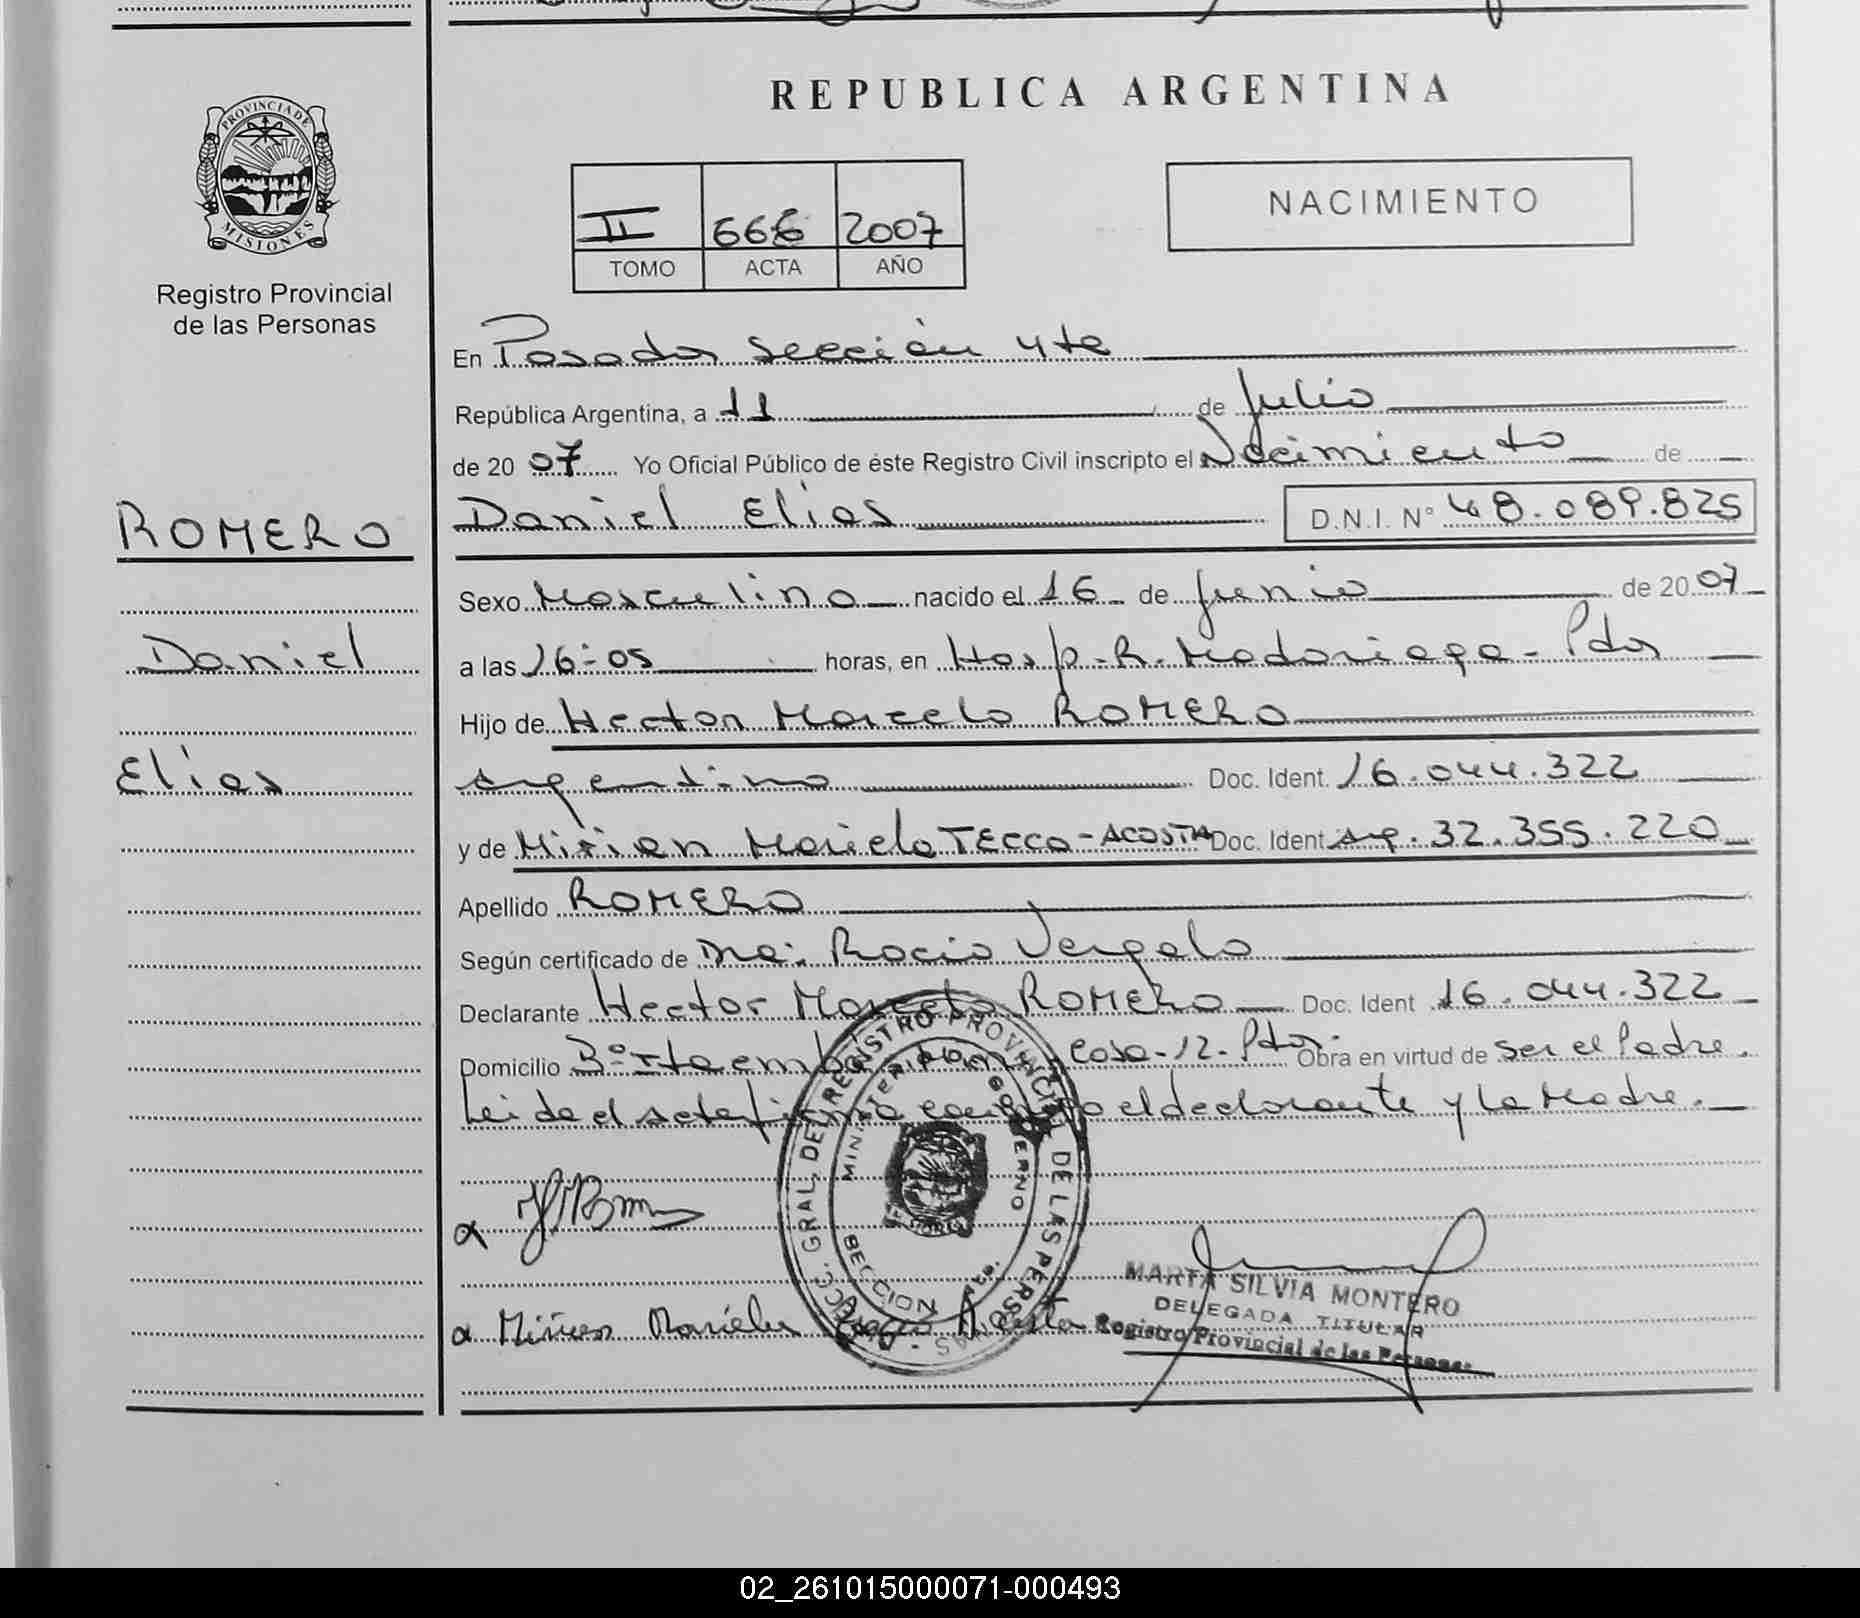 REPUBLICA ARGENTINA
PROVINCIA DE
MISIONES
Registro Provincial
de las Personas
II 666 2007
TOMO ACTA AÑO
NACIMIENTO
En Posadas sección 4ta
República Argentina, a 11 de Julio
de 2007 Yo Oficial Público de éste Registro Civil inscripto el Nacimiento de
ROMERO
Daniel Elias D.N.I. N° 48.089.825
Sexo Masculino nacido el 16 de Junio de 2007
Daniel
a las 16:05 horas, en Hosp. R. Madariaga - Pdas
Hijo de Hector Marcelo ROMERO
Elias
argentino Doc. Ident. 16.044.322
y de Mirian Mariela TECCO - ACOSTA Doc. Ident arg. 32.355.220
Apellido ROMERO
Según certificado de Dra: Rocio Vergalo
Declarante Hector Marcelo ROMERO Doc. Ident 16.044.322
Domicilio Casa-12- Pdas. Obra en virtud de ser el Padre.
Leida el acta firma el declarante y la Madre.
DIRECC. GRAL. DEL REGISTRO PROVINCIAL DE LAS PERSONAS
MINISTERIO GOBIERNO
SECCION 4ta.
Mirian Mariela Acosta
MARTA SILVIA MONTERO
DELEGADA TITULAR
Registro Provincial de las Personas
02_261015000071-000493